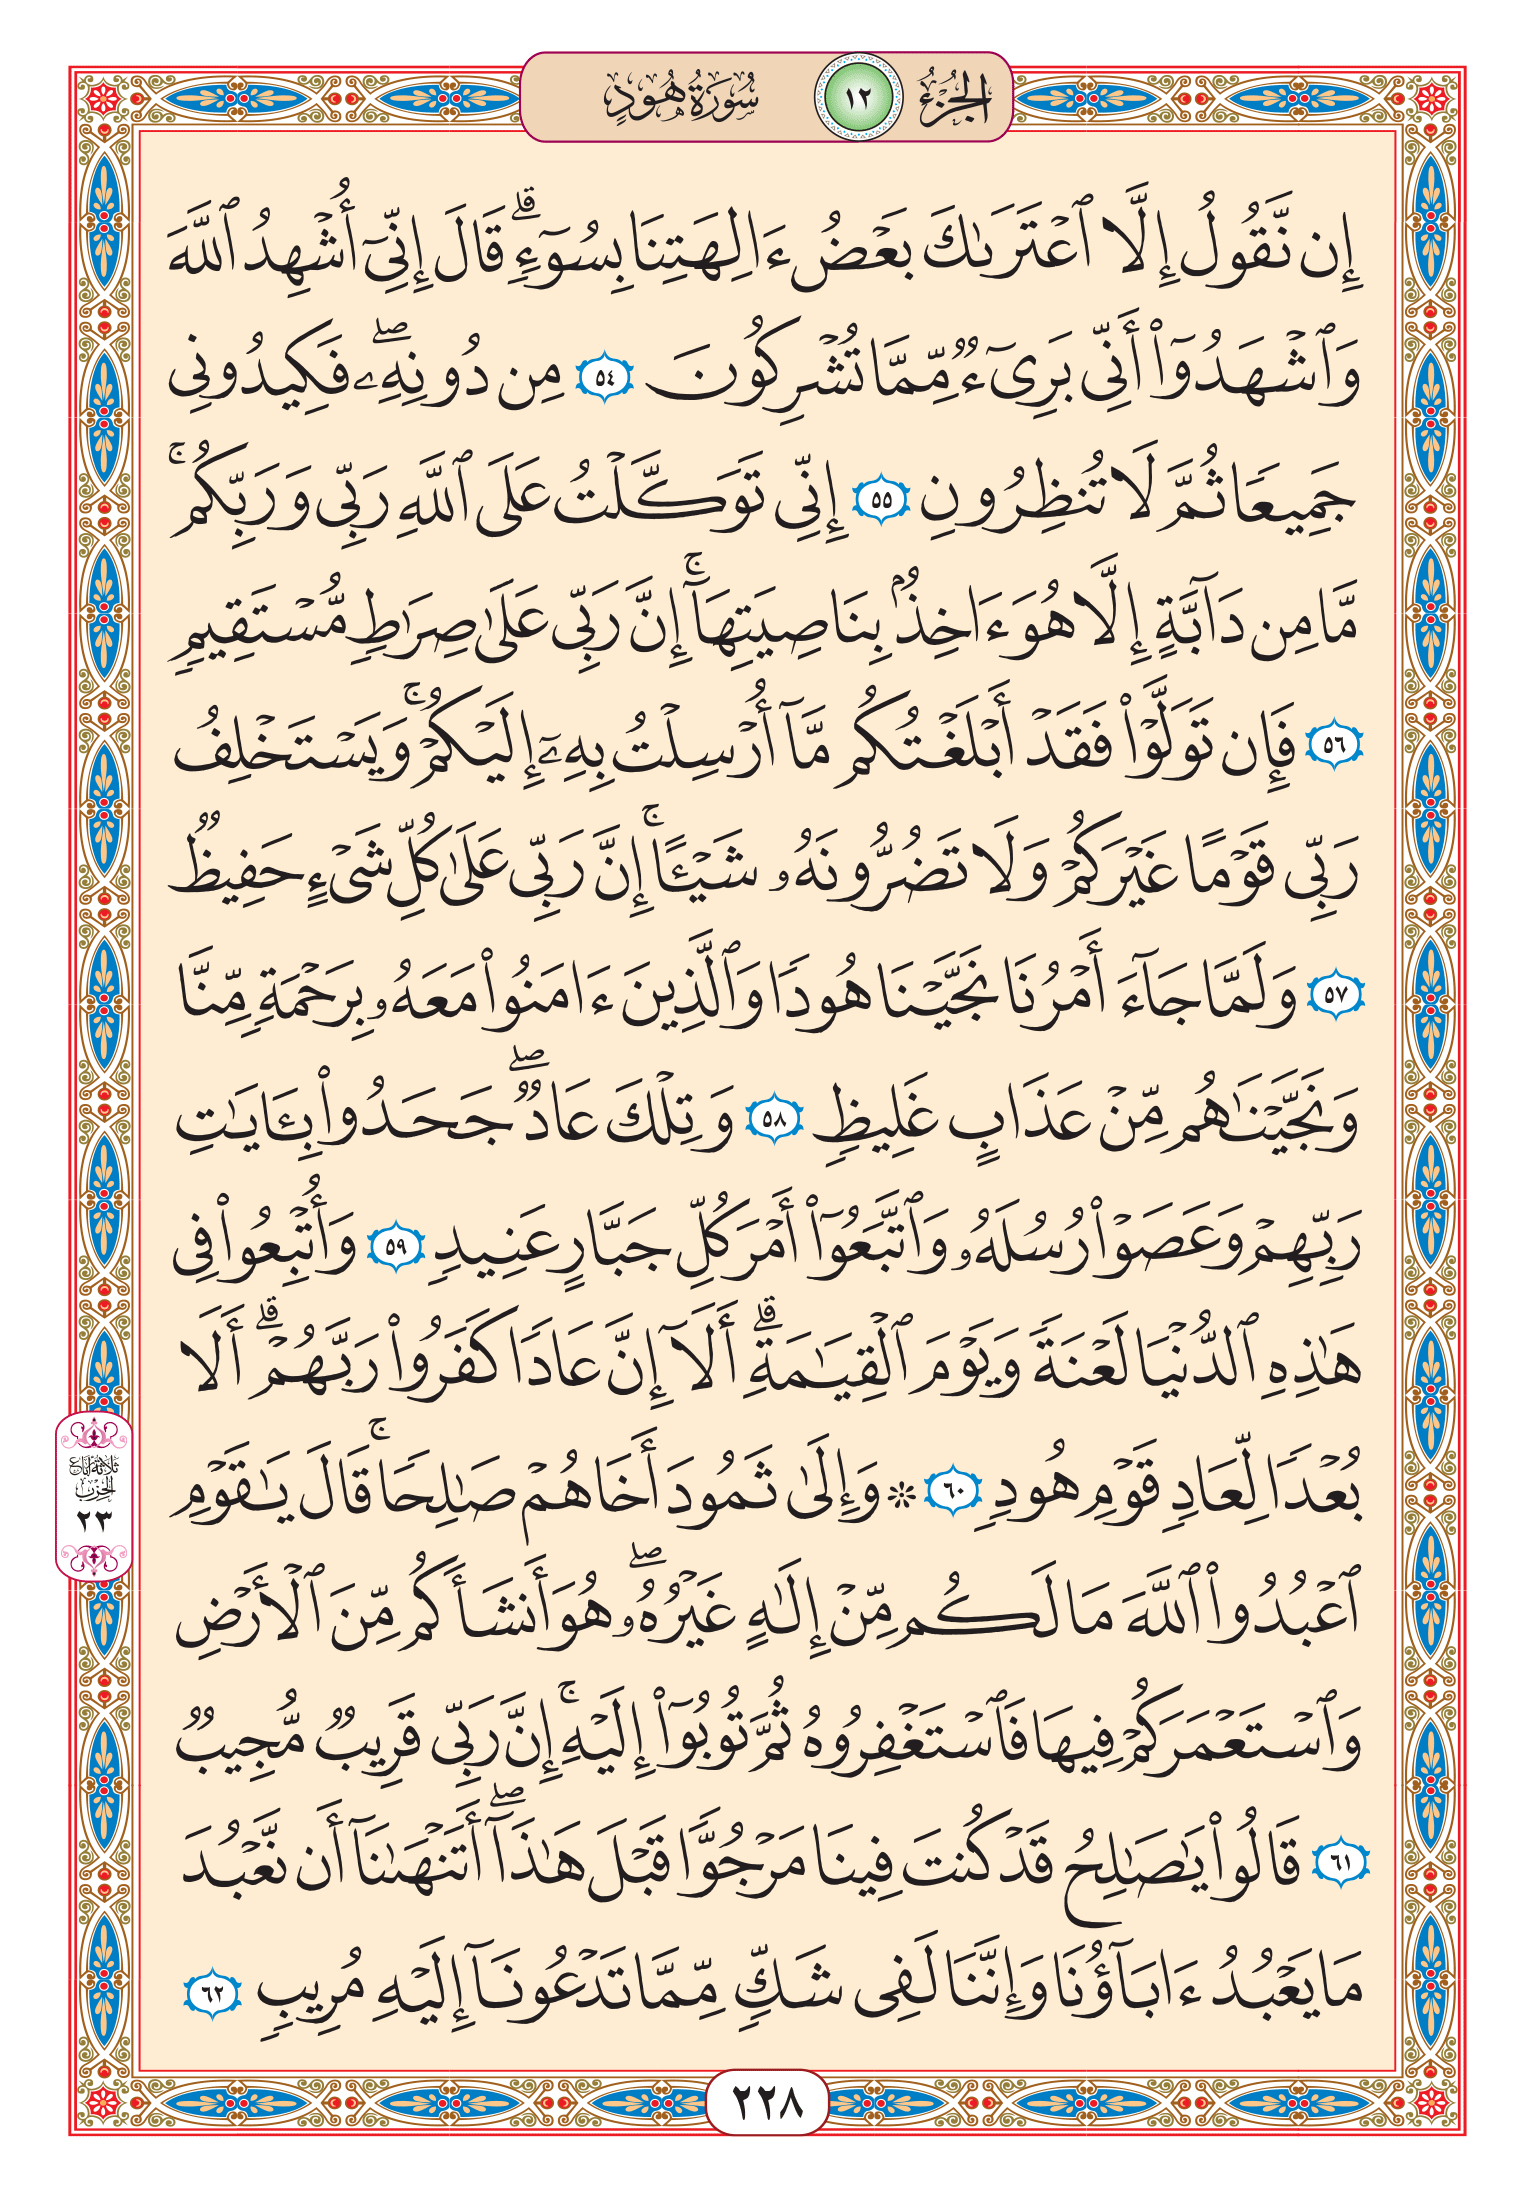 الجُزْءُ ١٢ سُورَةُ هُودٍ
إِن نَّقُولُ إِلَّا ٱعْتَرَىٰكَ بَعْضُ ءَالِهَتِنَا بِسُوٓءٍۗ قَالَ إِنِّىٓ أُشْهِدُ ٱللَّهَ
وَٱشْهَدُوٓا۟ أَنِّى بَرِىٓءٌ مِّمَّا تُشْرِكُونَ ٥٤ مِن دُونِهِۦۖ فَكِيدُونِى
جَمِيعًا ثُمَّ لَا تُنظِرُونِ ٥٥ إِنِّى تَوَكَّلْتُ عَلَى ٱللَّهِ رَبِّى وَرَبِّكُمۚ
مَّا مِن دَآبَّةٍ إِلَّا هُوَ ءَاخِذٌۢ بِنَاصِيَتِهَآۚ إِنَّ رَبِّى عَلَىٰ صِرَٰطٍ مُّسْتَقِيمٍ
٥٦ فَإِن تَوَلَّوْا۟ فَقَدْ أَبْلَغْتُكُم مَّآ أُرْسِلْتُ بِهِۦٓ إِلَيْكُمْۚ وَيَسْتَخْلِفُ
رَبِّى قَوْمًا غَيْرَكُمْ وَلَا تَضُرُّونَهُۥ شَيْـًٔاۚ إِنَّ رَبِّى عَلَىٰ كُلِّ شَىْءٍ حَفِيظٌ
٥٧ وَلَمَّا جَآءَ أَمْرُنَا نَجَّيْنَا هُودًا وَٱلَّذِينَ ءَامَنُوا۟ مَعَهُۥ بِرَحْمَةٍ مِّنَّا
وَنَجَّيْنَٰهُم مِّنْ عَذَابٍ غَلِيظٍ ٥٨ وَتِلْكَ عَادٌۖ جَحَدُوا۟ بِـَٔايَٰتِ
رَبِّهِمْ وَعَصَوْا۟ رُسُلَهُۥ وَٱتَّبَعُوٓا۟ أَمْرَ كُلِّ جَبَّارٍ عَنِيدٍ ٥٩ وَأُتْبِعُوا۟ فِى
هَٰذِهِ ٱلدُّنْيَا لَعْنَةً وَيَوْمَ ٱلْقِيَٰمَةِۗ أَلَآ إِنَّ عَادًا كَفَرُوا۟ رَبَّهُمْۗ أَلَا
بُعْدًا لِّعَادٍ قَوْمِ هُودٍ ٦٠ ۞ وَإِلَىٰ ثَمُودَ أَخَاهُمْ صَٰلِحًاۚ قَالَ يَٰقَوْمِ
ثلاثة أرباع الحزب ٢٣
ٱعْبُدُوا۟ ٱللَّهَ مَا لَكُم مِّنْ إِلَٰهٍ غَيْرُهُۥۖ هُوَ أَنشَأَكُم مِّنَ ٱلْأَرْضِ
وَٱسْتَعْمَرَكُمْ فِيهَا فَٱسْتَغْفِرُوهُ ثُمَّ تُوبُوٓا۟ إِلَيْهِۚ إِنَّ رَبِّى قَرِيبٌ مُّجِيبٌ
٦١ قَالُوا۟ يَٰصَٰلِحُ قَدْ كُنتَ فِينَا مَرْجُوًّا قَبْلَ هَٰذَآۖ أَتَنْهَىٰنَآ أَن نَّعْبُدَ
مَا يَعْبُدُ ءَابَآؤُنَا وَإِنَّنَا لَفِى شَكٍّ مِّمَّا تَدْعُونَآ إِلَيْهِ مُرِيبٍ ٦٢
٢٢٨